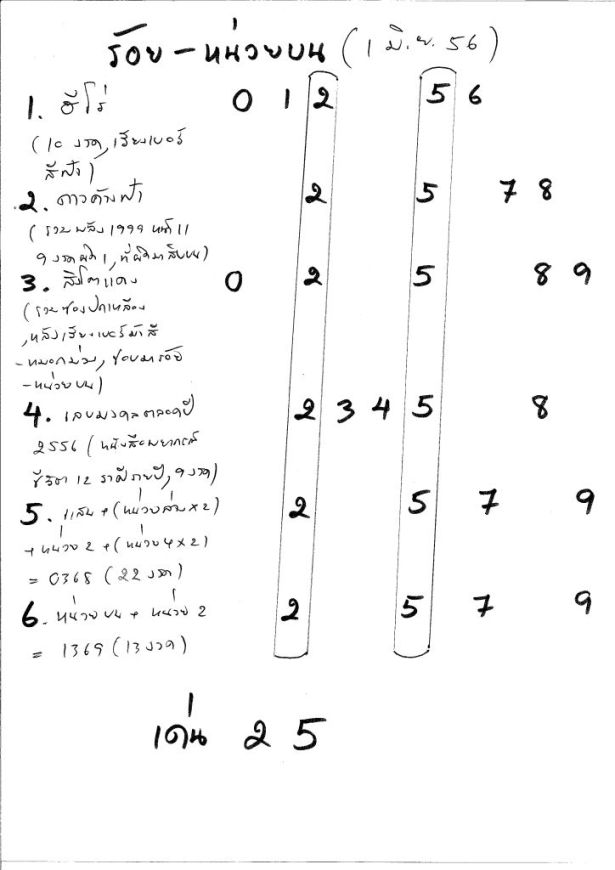 ร้อย - หน่วยบน (1 มิ.ย. 56)
1. ฮีโร่ 0 1 2 5 6
(10 งวด, เรียงเบอร์
สีฟ้า)
2. ดาวค้างฟ้า 2 5 7 8
(รวมพลัง 1999 หน้า 11
9 งวดผิด 1, ที่ผิดมาสิบบน)
3. สิงโตแดง 0 2 5 8 9
(รวมซองปกเหลือง
, หลังเรียงเบอร์ม้าสี
-หมอกม่วง, ชอบมาร้อย
-หน่วยบน)
4. เลขมงคลตลอดปี 2 3 4 5 8
2556 (หนังสือพยากรณ์
ชีวิต 12 ราศีรายปี, 9 งวด)
5. แสน + (หน่วยล่าง x 2) 2 5 7 9
+ หน่วย 2 + (หน่วย 4 x 2)
= 0368 (22 งวด)
6. หน่วยบน + หน่วย 2 2 5 7 9
= 1369 (13 งวด)
เด่น 2 5